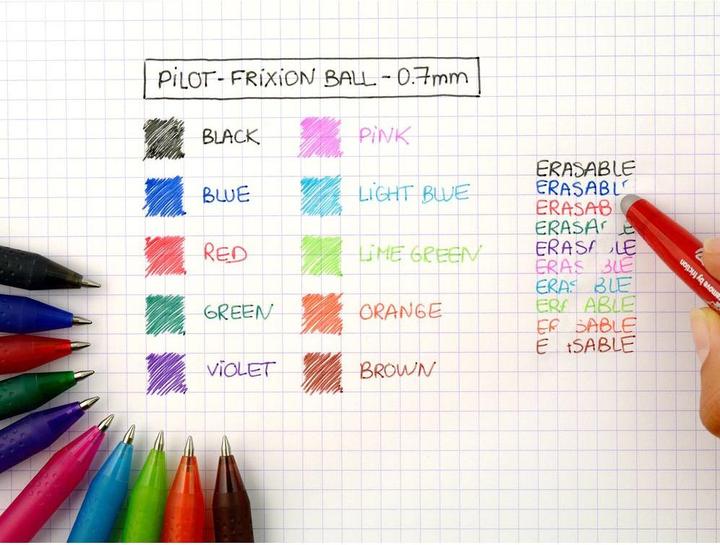 PiLOT - FRiXiON BALL - 0.7mm
BLACK
BLUE
RED
GREEN
ViOLET
PiNK
LiGHT BLUE
LiME GREEN
ORANGE
BROWN
ERASABLE
ERASABL
ERASAB
ERASA
ERASA LE
ERAS BLE
ERA BLE
ER ABLE
ER SABLE
E SABLE
by friction